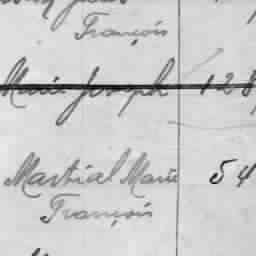 François
Marie Joseph 128
Martial Marie 54
François